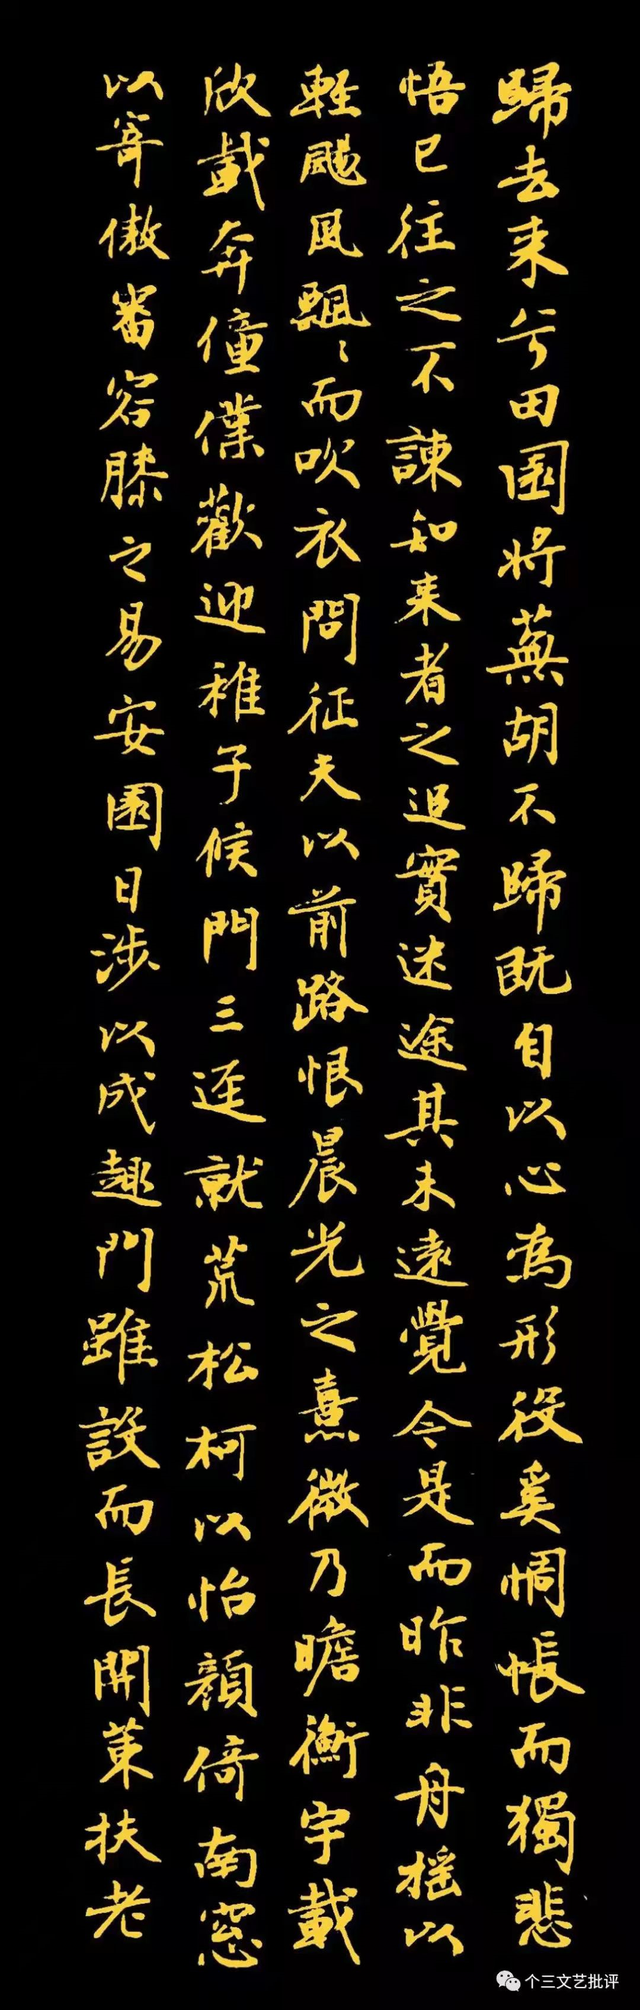 歸去来兮田園將蕪胡不歸既自以心為形役奚惆悵而獨悲
悟已往之不諫知来者之追實迷途其未遠覺今是而昨非舟摇以
輕颺風飄〻而吹衣問征夫以前路恨晨光之熹微乃瞻衡宇載
欣載奔僮僕歡迎稚子候門三逕就荒松柯以怡顏倚南窓
以寄傲審容膝之易安園日涉以成趣門雖設而長開策扶老
个三文艺批评